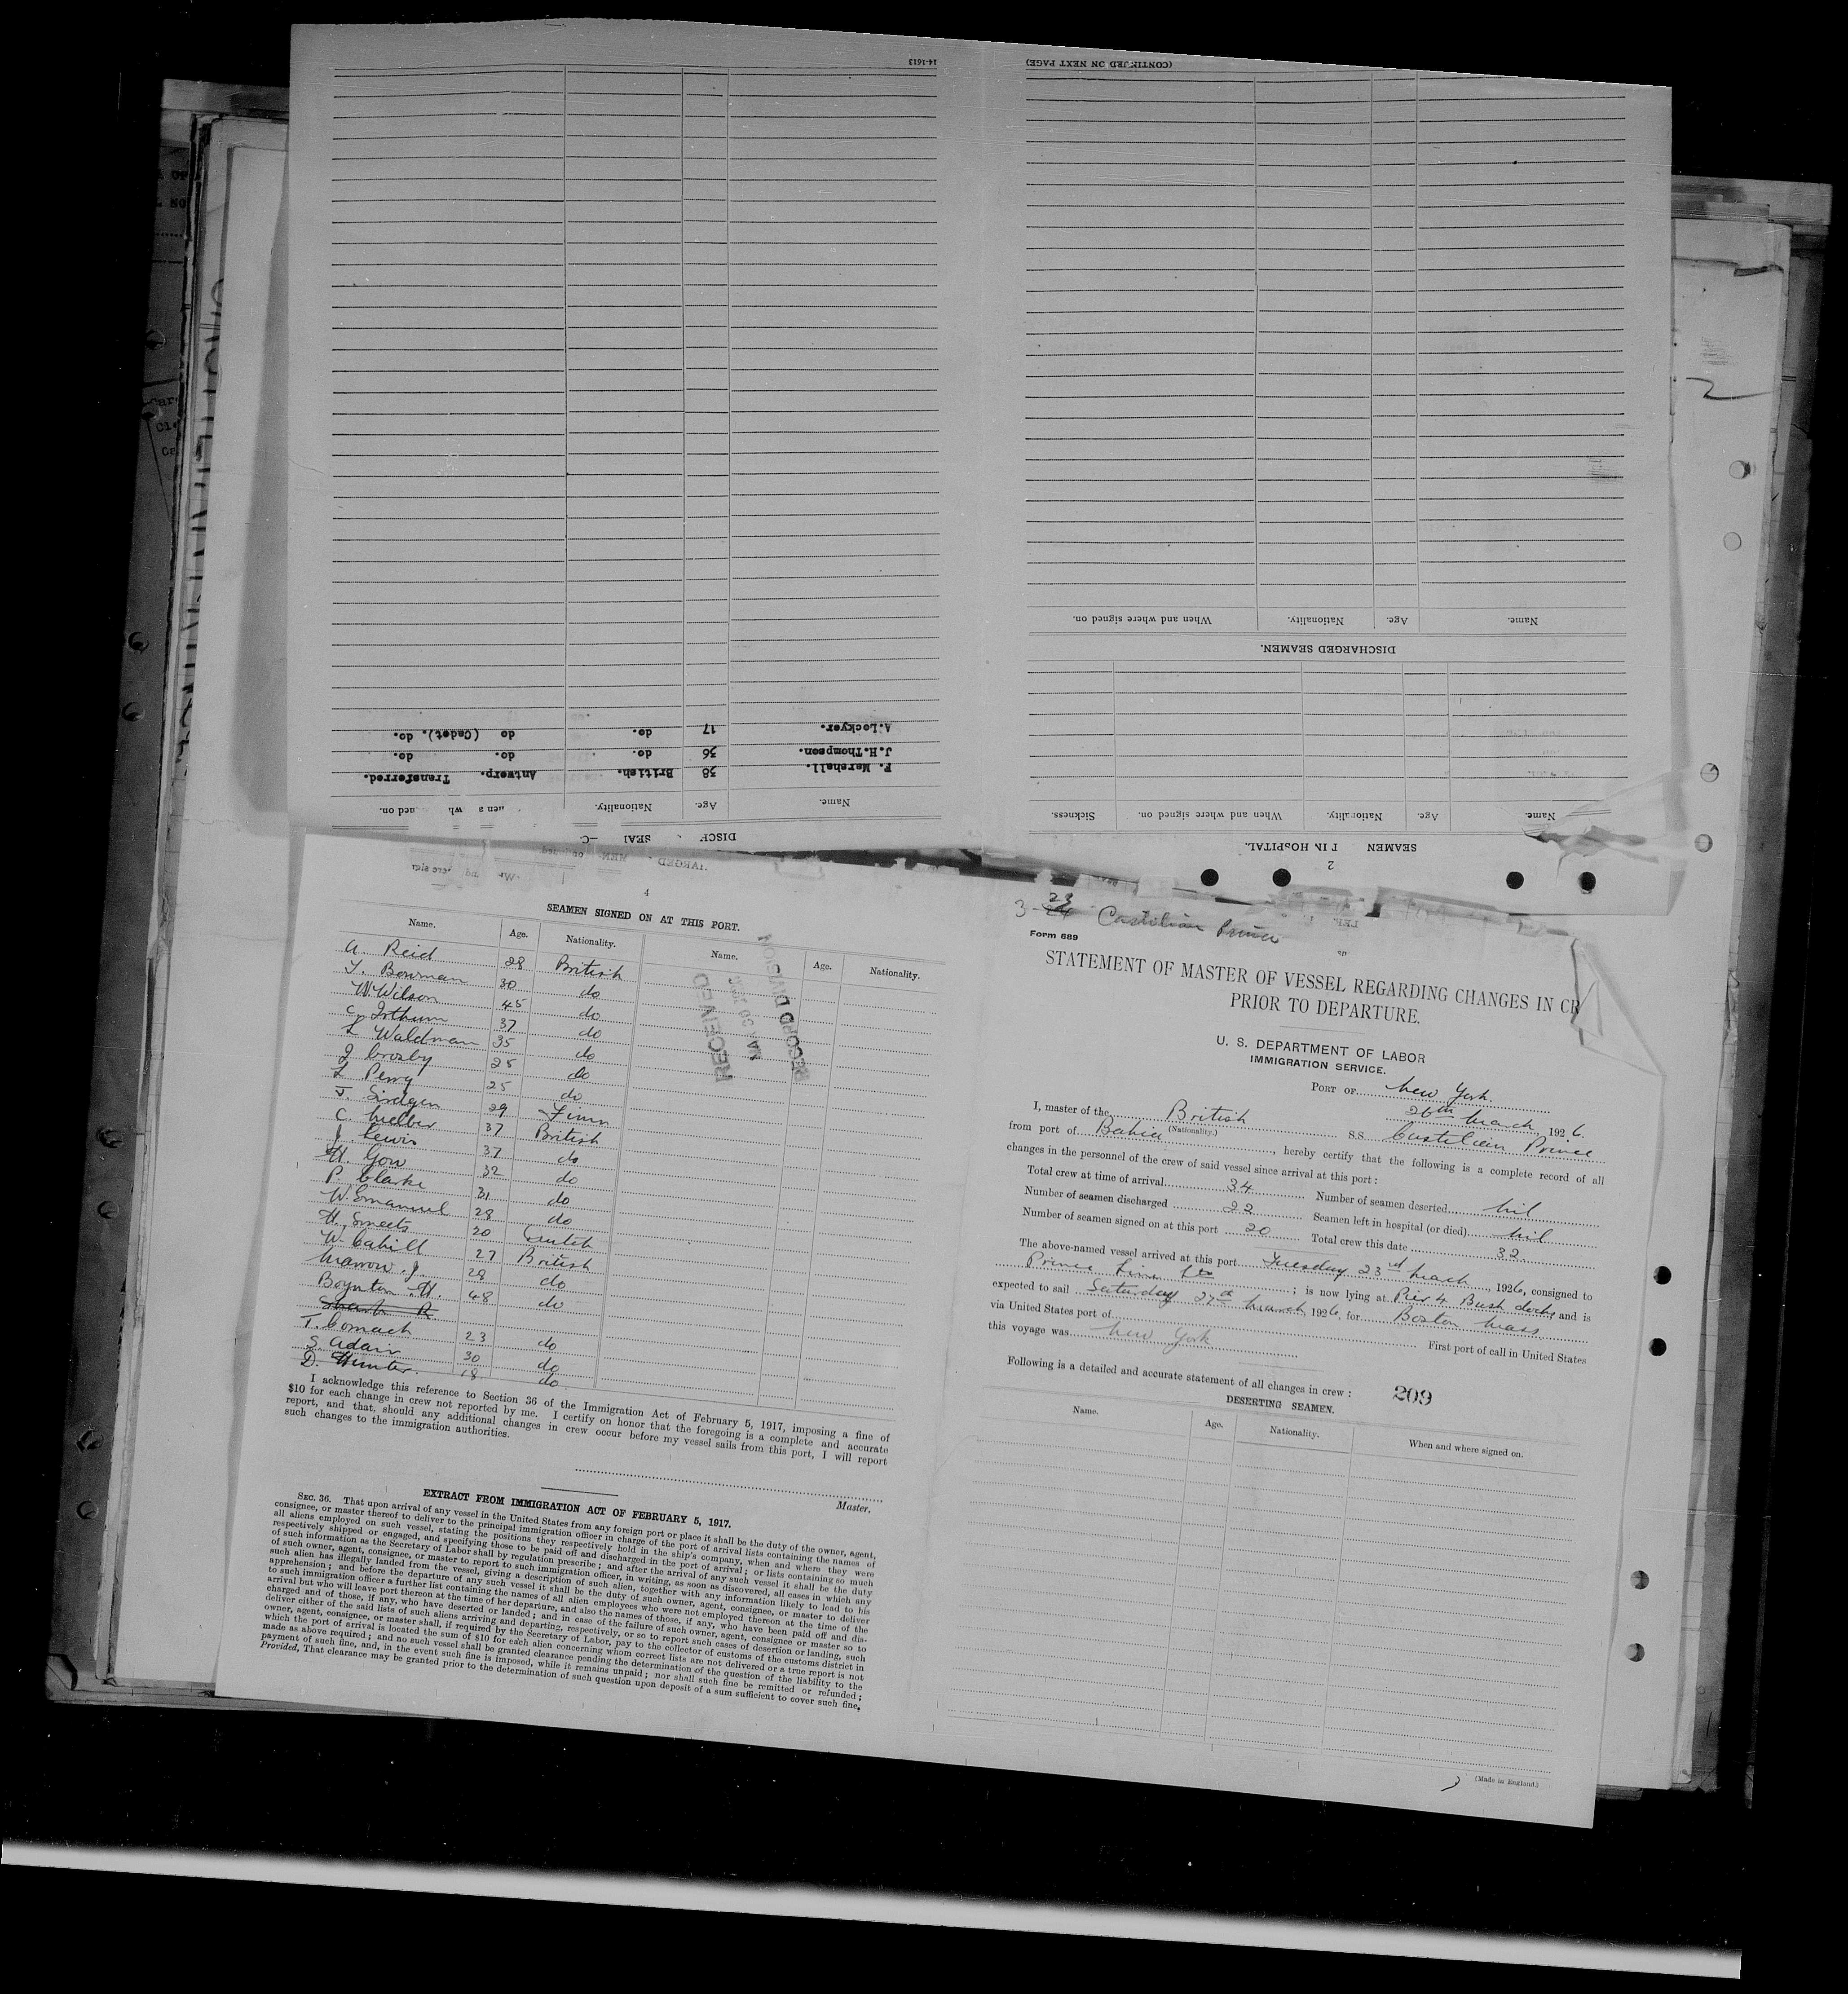 14-1613
(CONTINUED ON NEXT PAGE)
Name. Age. Nationality. When and where signed on.
DISCHARGED SEAMEN.
A.Lockyer. 17 do. do (Cadet). do.
J.H.Thompson. 36 do. do. do.
F. Marshall. 38 British. Antwerp. Transferred.
Name. Age. Nationality.
Name. Age. Nationality. When and where signed on. Sickness.
SEAMEN IN HOSPITAL.
2
4
SEAMEN SIGNED ON AT THIS PORT.
Name. Age. Nationality. Name. Age. Nationality.
A. Reid 28 British
T. Bowman 30 do
W. Wilson 45 do
C. 37 do
L Waldman 35 do
J Crosby 25 do
L Perry 25 do
J. 29 Finn
C. 37 British
J. Lewis 37 do
H. Gow 32 do
P. Clarke 31 do
W. Emanuel 28 do
H. Smeets 20 Dutch
W. Cahill 27 British
Marrow. J. 28 do
Boynton. H. 48 do
T. Comack 23 do
S. Adair 30 do
D. Hunter. 18 do
RECEIVED
MAR 30 1926
RECORD DIVISION
I acknowledge this reference to Section 36 of the Immigration Act of February 5, 1917, imposing a fine of
$10 for each change in crew not reported by me. I certify on honor that the foregoing is a complete and accurate
report, and that, should any additional changes in crew occur before my vessel sails from this port, I will report
such changes to the immigration authorities.
Master.
EXTRACT FROM IMMIGRATION ACT OF FEBRUARY 5, 1917.
SEC. 36. That upon arrival of any vessel in the United States from any foreign port or place it shall be the duty of the owner, agent,
consignee, or master thereof to deliver to the principal immigration officer in charge of the port of arrival lists containing the names of
all aliens employed on such vessel, stating the positions they respectively hold in the ship's company, when and where they were
respectively shipped or engaged, and specifying those to be paid off and discharged in the port of arrival; or lists containing so much
of such information as the Secretary of Labor shall by regulation prescribe; and after the arrival of any such vessel it shall be the duty
of such owner, agent, consignee, or master to report to such immigration officer, in writing, as soon as discovered, all cases in which any
such alien has illegally landed from the vessel, giving a description of such alien, together with any information likely to lead to his
apprehension; and before the departure of any such vessel it shall be the duty of such owner, agent, consignee, or master to deliver
to such immigration officer a further list containing the names of all alien employees who were not employed thereon at the time of the
arrival but who will leave port thereon at the time of her departure, and also the names of those, if any, who have been paid off and dis-
charged and of those, if any, who have deserted or landed; and in case of the failure of such owner, agent, consignee or master so to
deliver either of the said lists of such aliens arriving and departing, respectively, or so to report such cases of desertion or landing, such
owner, agent, consignee, or master shall, if required by the Secretary of Labor, pay to the collector of customs of the customs district in
which the port of arrival is located the sum of $10 for each alien concerning whom correct lists are not delivered or a true report is not
made as above required; and no such vessel shall be granted clearance pending the determination of the question of the liability to the
payment of such fine, and, in the event such fine is imposed, while it remains unpaid; nor shall such fine be remitted or refunded;
Provided, That clearance may be granted prior to the determination of such question upon deposit of a sum sufficient to cover such fine.
3-24 23 Castilian Prince
Form 689
STATEMENT OF MASTER OF VESSEL REGARDING CHANGES IN CR
PRIOR TO DEPARTURE.
U. S. DEPARTMENT OF LABOR
IMMIGRATION SERVICE.
PORT OF New York
26th March, 1926.
I, master of the British S.S. Castilian Prince
(Nationality.)
from port of Bahia, hereby certify that the following is a complete record of all
changes in the personnel of the crew of said vessel since arrival at this port:
Total crew at time of arrival 34 Number of seamen deserted nil
Number of seamen discharged 22 Seamen left in hospital (or died) nil
Number of seamen signed on at this port 20 Total crew this date 32
The above-named vessel arrived at this port Tuesday 23rd March, 1926, consigned to
Prince Line Ltd; is now lying at Pier 4 Bush docks and is
expected to sail Saturday 27th March, 1926, for Boston Mass
via United States port of First port of call in United States
this voyage was New York
Following is a detailed and accurate statement of all changes in crew:
209
DESERTING SEAMEN.
Name. Age. Nationality. When and where signed on.
(Made in England.)